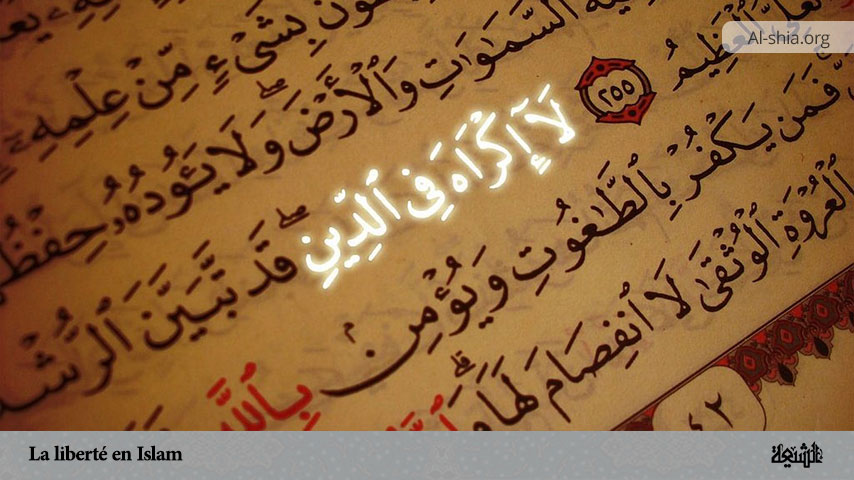 Al-shia.org
بِشَىْءٍ مِّنْ عِلْمِهِۦٓ
ٱلسَّمَٰوَٰتِ وَٱلْأَرْضَ ۖ وَلَا يَـُٔودُهُۥ
ٱلْعَظِيمُ ٢٥٥ لَآ إِكْرَاهَ فِى ٱلدِّينِ ۖ قَد تَّبَيَّنَ ٱلرُّشْدُ
فَمَن يَكْفُرْ بِٱلطَّٰغُوتِ وَيُؤْمِنۢ بِٱللَّهِ
ٱلْعُرْوَةِ ٱلْوُثْقَىٰ لَا ٱنفِصَامَ لَهَا ۗ
٤٢
La liberté en Islam
الشيعة